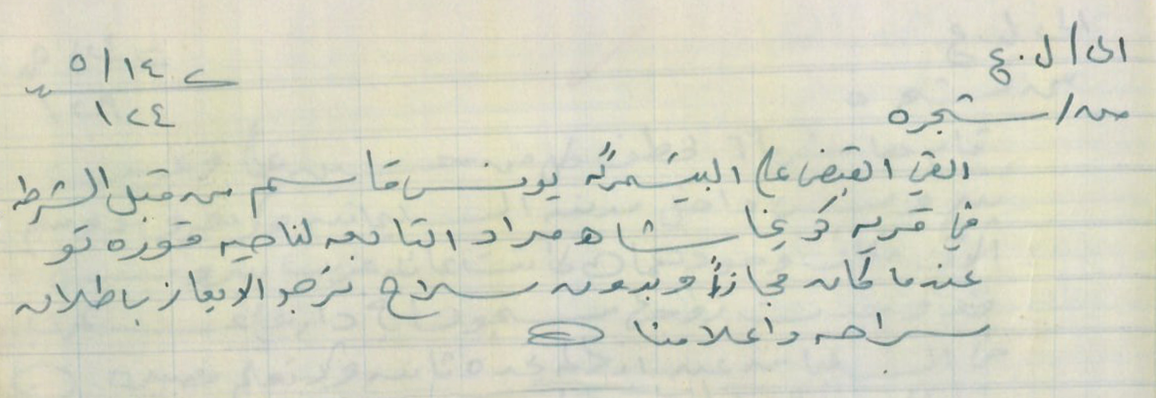 الى / ل . ع
٥/١٤
١٢٤
من / شجره
القي القبض على البيشمرگه يونس قاسم من قبل الشرطه
في قريه كريخا شاهمراد التابعه لناحيه قوره تو
عندما كان مجازاً وبدون سلاح نرجو الايعاز باطلاق
سراحه واعلامنا